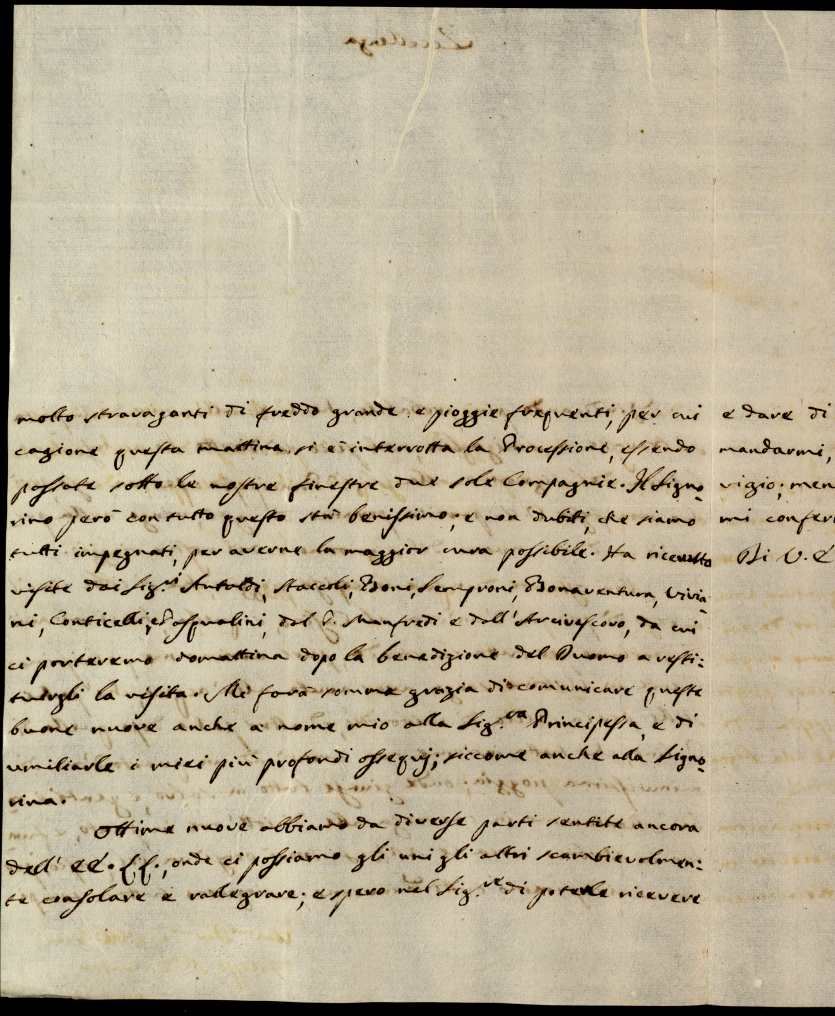 molto stravaganti di freddo grande e pioggie frequenti, per cui
cagione questa mattina si è interrotta la Processione, essendo
passate sotto le nostre finestre due sole Compagnie. Il Signo-
rino però con tutto questo stà benissimo; e non dubiti, che siamo
tutti impegnati, per averne la maggior cura possibile. Ha ricevuto
visite dai Sig.ri Antaldi, Staccoli, Boni, Semproni, Bonaventura, Vivia-
ni, Conticelli, e Pasqualini, dal P. Manfredi e dall'Arcivescovo, da cui
ci porteremo domattina dopo la benedizione del Duomo a resti:
tuirgli la visita. Mi farà somma grazia di comunicare queste
buone nuove anche a nome mio alla Sig.ra Principessa, e di
umiliarle i miei più profondi ossequj; siccome anche alla Signo-
rina.
Ottime nuove abbiamo da diverse parti sentite ancora
dell' EE. LL., onde ci possiamo gli uni gli altri scambievolmen:
te consolare e rallegrare; e spero nel Sig.re di poterle ricevere
e dare di
mandarmi,
vigio; men
mi confer
Di V. E